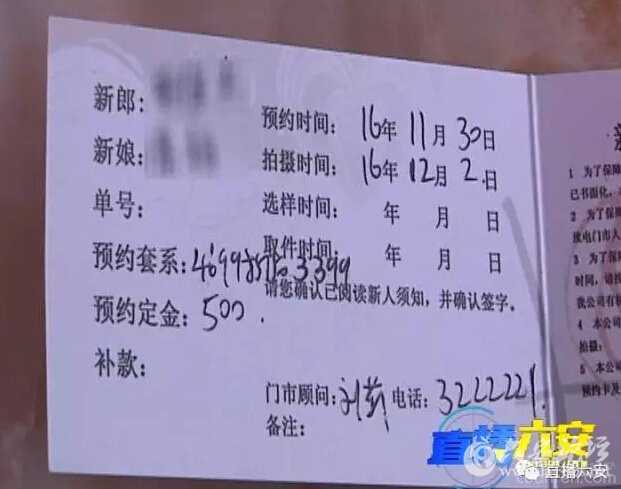 新郎:
新娘:
单号:
预约套系: 4699 3399
预约定金: 500.
补款:
预约时间: 16年 11月 30日
拍摄时间: 16年 12月 2日
选样时间: 年 月 日
取件时间: 年 月 日
请您确认已阅读新人须知,并确认签字。
门市顾问: 电话: 3222221.
备注:
1 为了保障
已书面化,
2 为了保
致电门市人
3 为了保
时间,请按
我公司有权
4 本公司
拍摄:
5 本公
预约卡及
直播六安
直播六安